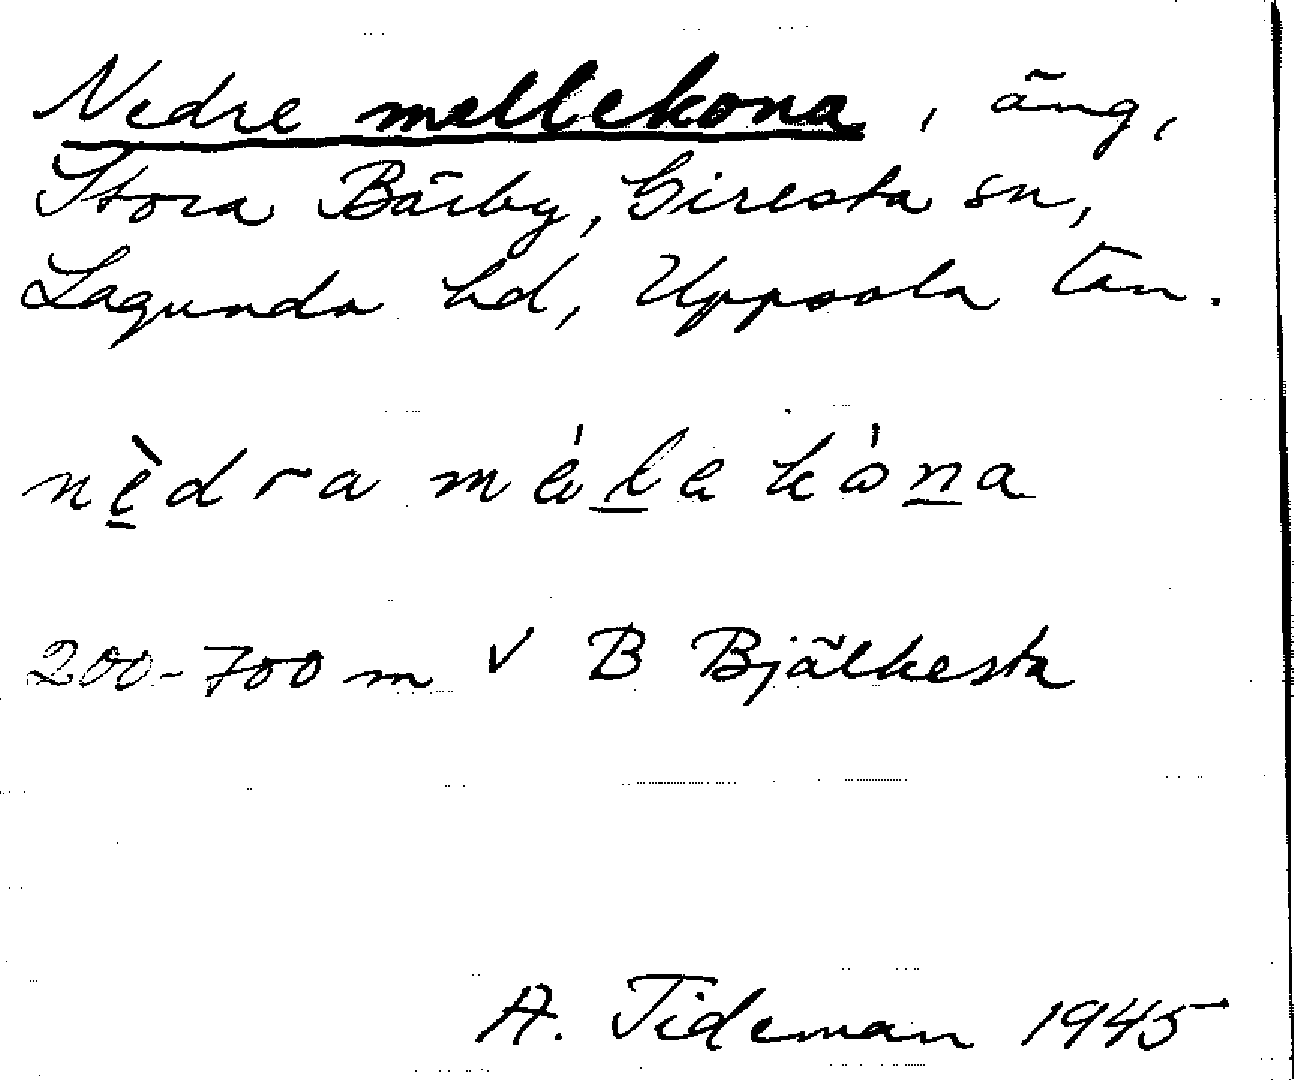 Nedre mellekona, äng,
Stora Bärby, Giresta sn,
Lagunda hd, Uppsala län.
nèdra mélekóna
200-700 m V B Bjälkesta
A. Tideman 1945